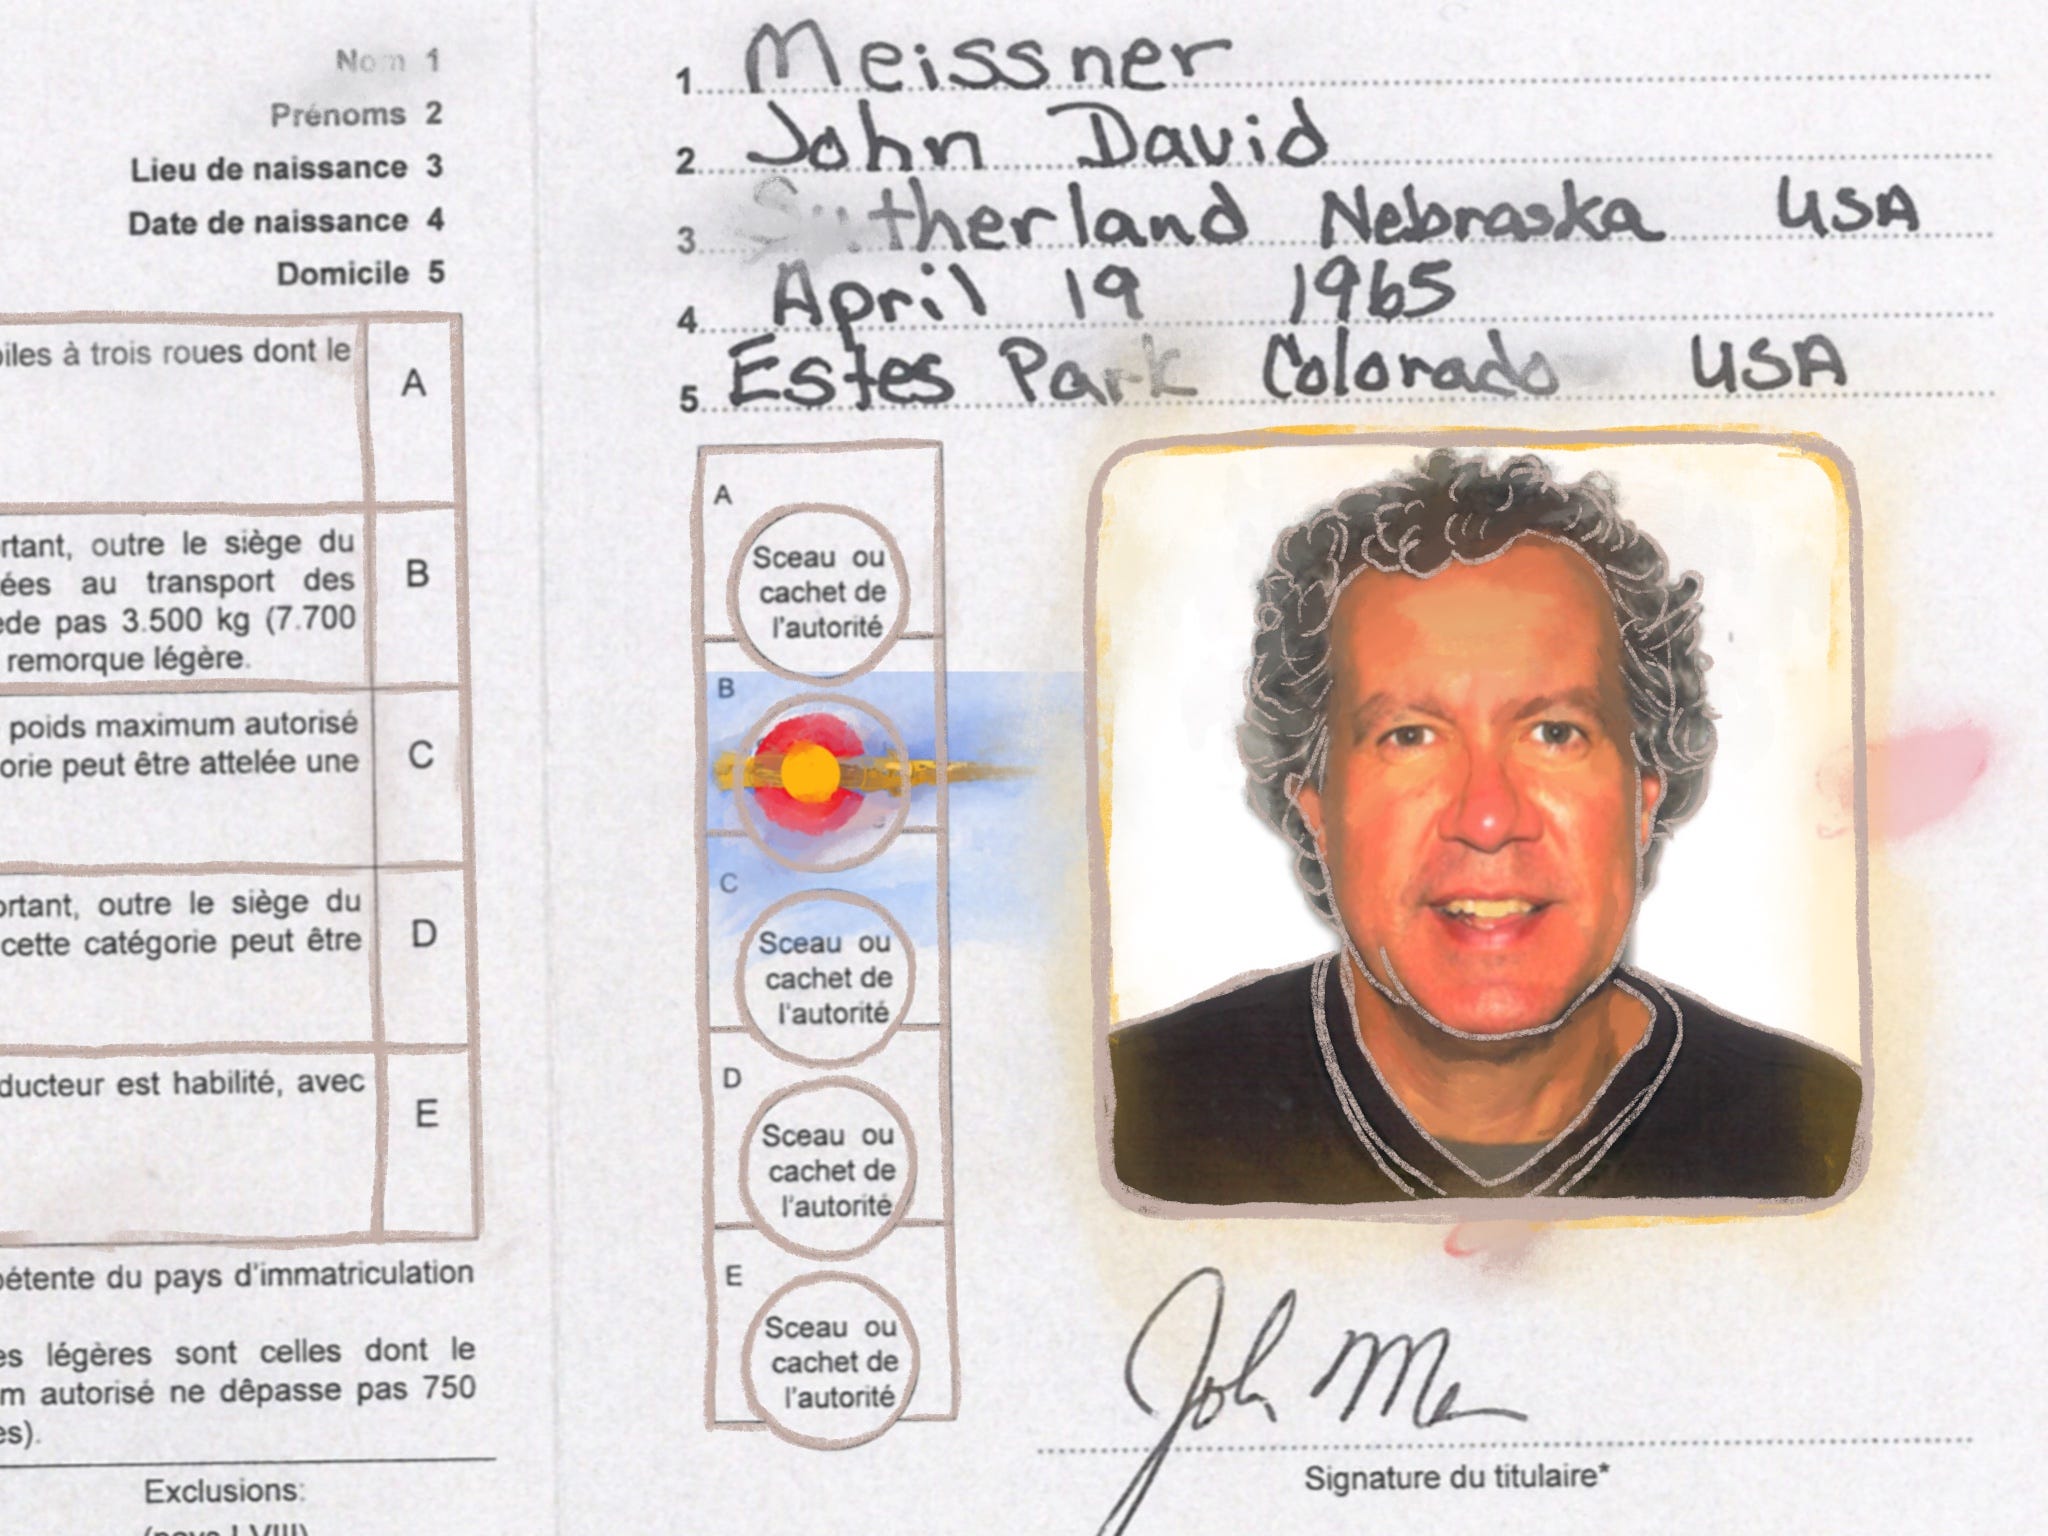 Nom 1
Prénoms 2
Lieu de naissance 3
Date de naissance 4
Domicile 5
biles à trois roues dont le
A
rtant, outre le siège du
ées au transport des
ède pas 3.500 kg (7.700
remorque légère.
B
poids maximum autorisé
orie peut être attelée une
C
ortant, outre le siège du
cette catégorie peut être
D
ducteur est habilité, avec
E
pétente du pays d'immatriculation
es légères sont celles dont le
m autorisé ne dêpasse pas 750
es).
Exclusions:
(pays I-VIII)
1 Meissner
2 John David
3 Sutherland Nebraska USA
4 April 19 1965
5 Estes Park Colorado USA
A
Sceau ou
cachet de
l'autorité
B
C
Sceau ou
cachet de
l'autorité
D
Sceau ou
cachet de
l'autorité
E
Sceau ou
cachet de
l'autorité
John Me
Signature du titulaire*